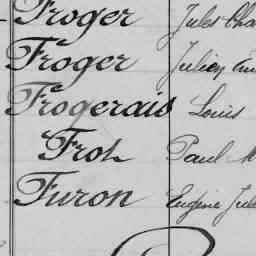 Froger Jules Cha
Froger Julien
Frogerais Louis
Frot Paul M
Furon Eugène Jule